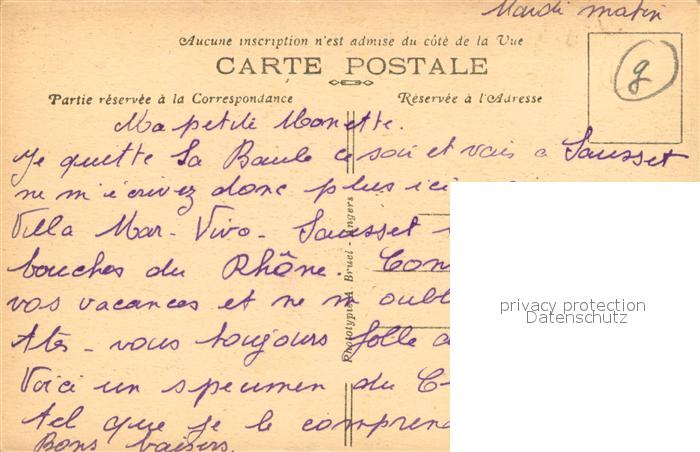 Mardi matin
Aucune inscription n'est admise du côté de la Vue
CARTE POSTALE
Partie réservée à la Correspondance
Réservée à l'Adresse
g
Ma petite Monette.
Je quitte La Baule ce soir et vais a Sausset
ne m'écrivez donc plus ici
Villa Mar-Vivo - Sausset
bouches du Rhône.
vos vacances et ne m'oubl
vous toujours folle
Voici un specimen du
tel que je le comprend
Bons baisers.
Phototypie J. Bruel - Angers
privacy protection
Datenschutz